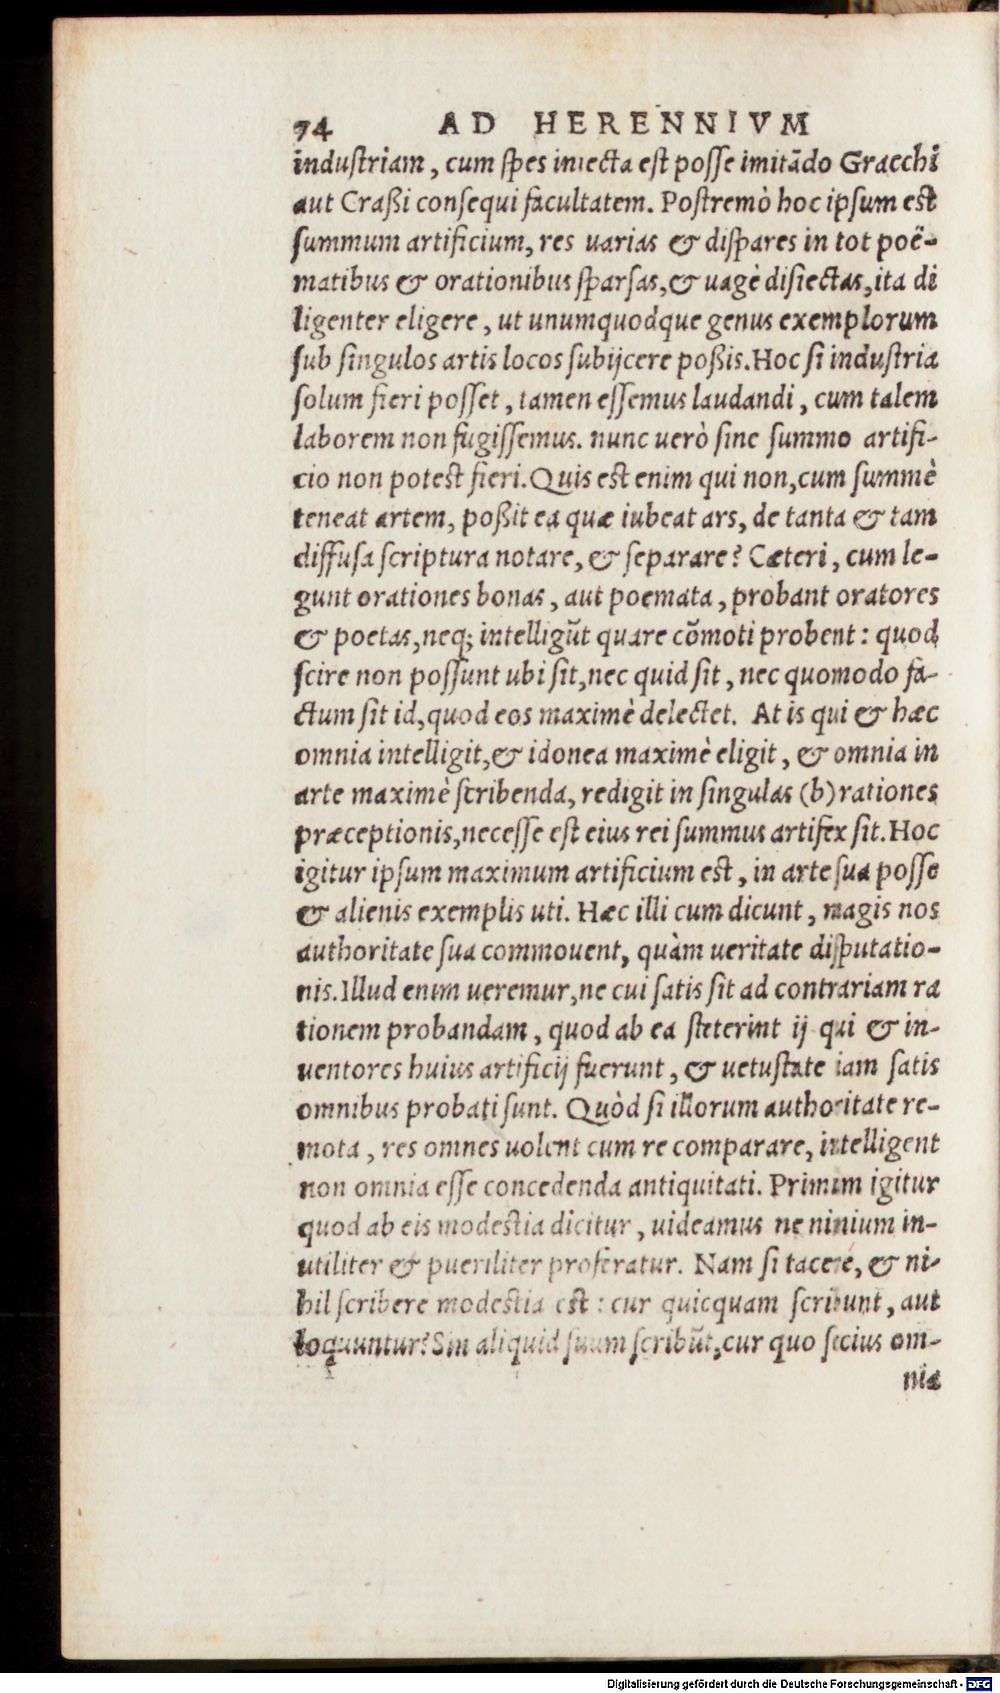 74 AD HERENNIVM
industriam, cum spes iniecta est posse imitādo Gracchi
aut Craßi consequi facultatem. Postremò hoc ipsum est
summum artificium, res varias & dispares in tot poë-
matibus & orationibus sparsas, & uagè disiectas, ita di
ligenter eligere, ut unumquodque genus exemplorum
sub singulos artis locos subijcere poßis. Hoc si industria
solum fieri posset, tamen essemus laudandi, cum talem
laborem non fugissemus. nunc uerò sine summo artifi-
cio non potest fieri. Quis est enim qui non, cum summè
teneat artem, poßit ea quæ iubeat ars, de tanta & tam
diffusa scriptura notare, & separare? Cæteri, cum le-
gunt orationes bonas, aut poemata, probant oratores
& poetas, neq; intelligūt quare cōmoti probent: quod
scire non possunt ubi sit, nec quid sit, nec quomodo fa-
ctum sit id, quod eos maximè delectet. At is qui & hæc
omnia intelligit, & idonea maximè eligit, & omnia in
arte maximè scribenda, redigit in singulas (b) rationes
præceptionis, necesse est eius rei summus artifex sit. Hoc
igitur ipsum maximum artificium est, in arte sua posse
& alienis exemplis uti. Hæc illi cum dicunt, magis nos
authoritate sua commouent, quàm ueritate disputatio-
nis. Illud enim ueremur, ne cui satis sit ad contrariam ra
tionem probandam, quod ab ea steterint ij qui & in-
uentores huius artificij fuerunt, & uetustate iam satis
omnibus probati sunt. Quòd si illorum authoritate re-
mota, res omnes uolent cum re comparare, intelligent
non omnia esse concedenda antiquitati. Primum igitur
quod ab eis modestia dicitur, uideamus ne nimium in-
utiliter & pueriliter proferatur. Nam si tacere, & ni-
hil scribere modestia est: cur quicquam scribunt, aut
loquuntur? Sin aliquid suum scribūt, cur quo secius om-
nia
Digitalisierung gefördert durch die Deutsche Forschungsgemeinschaft - DFG